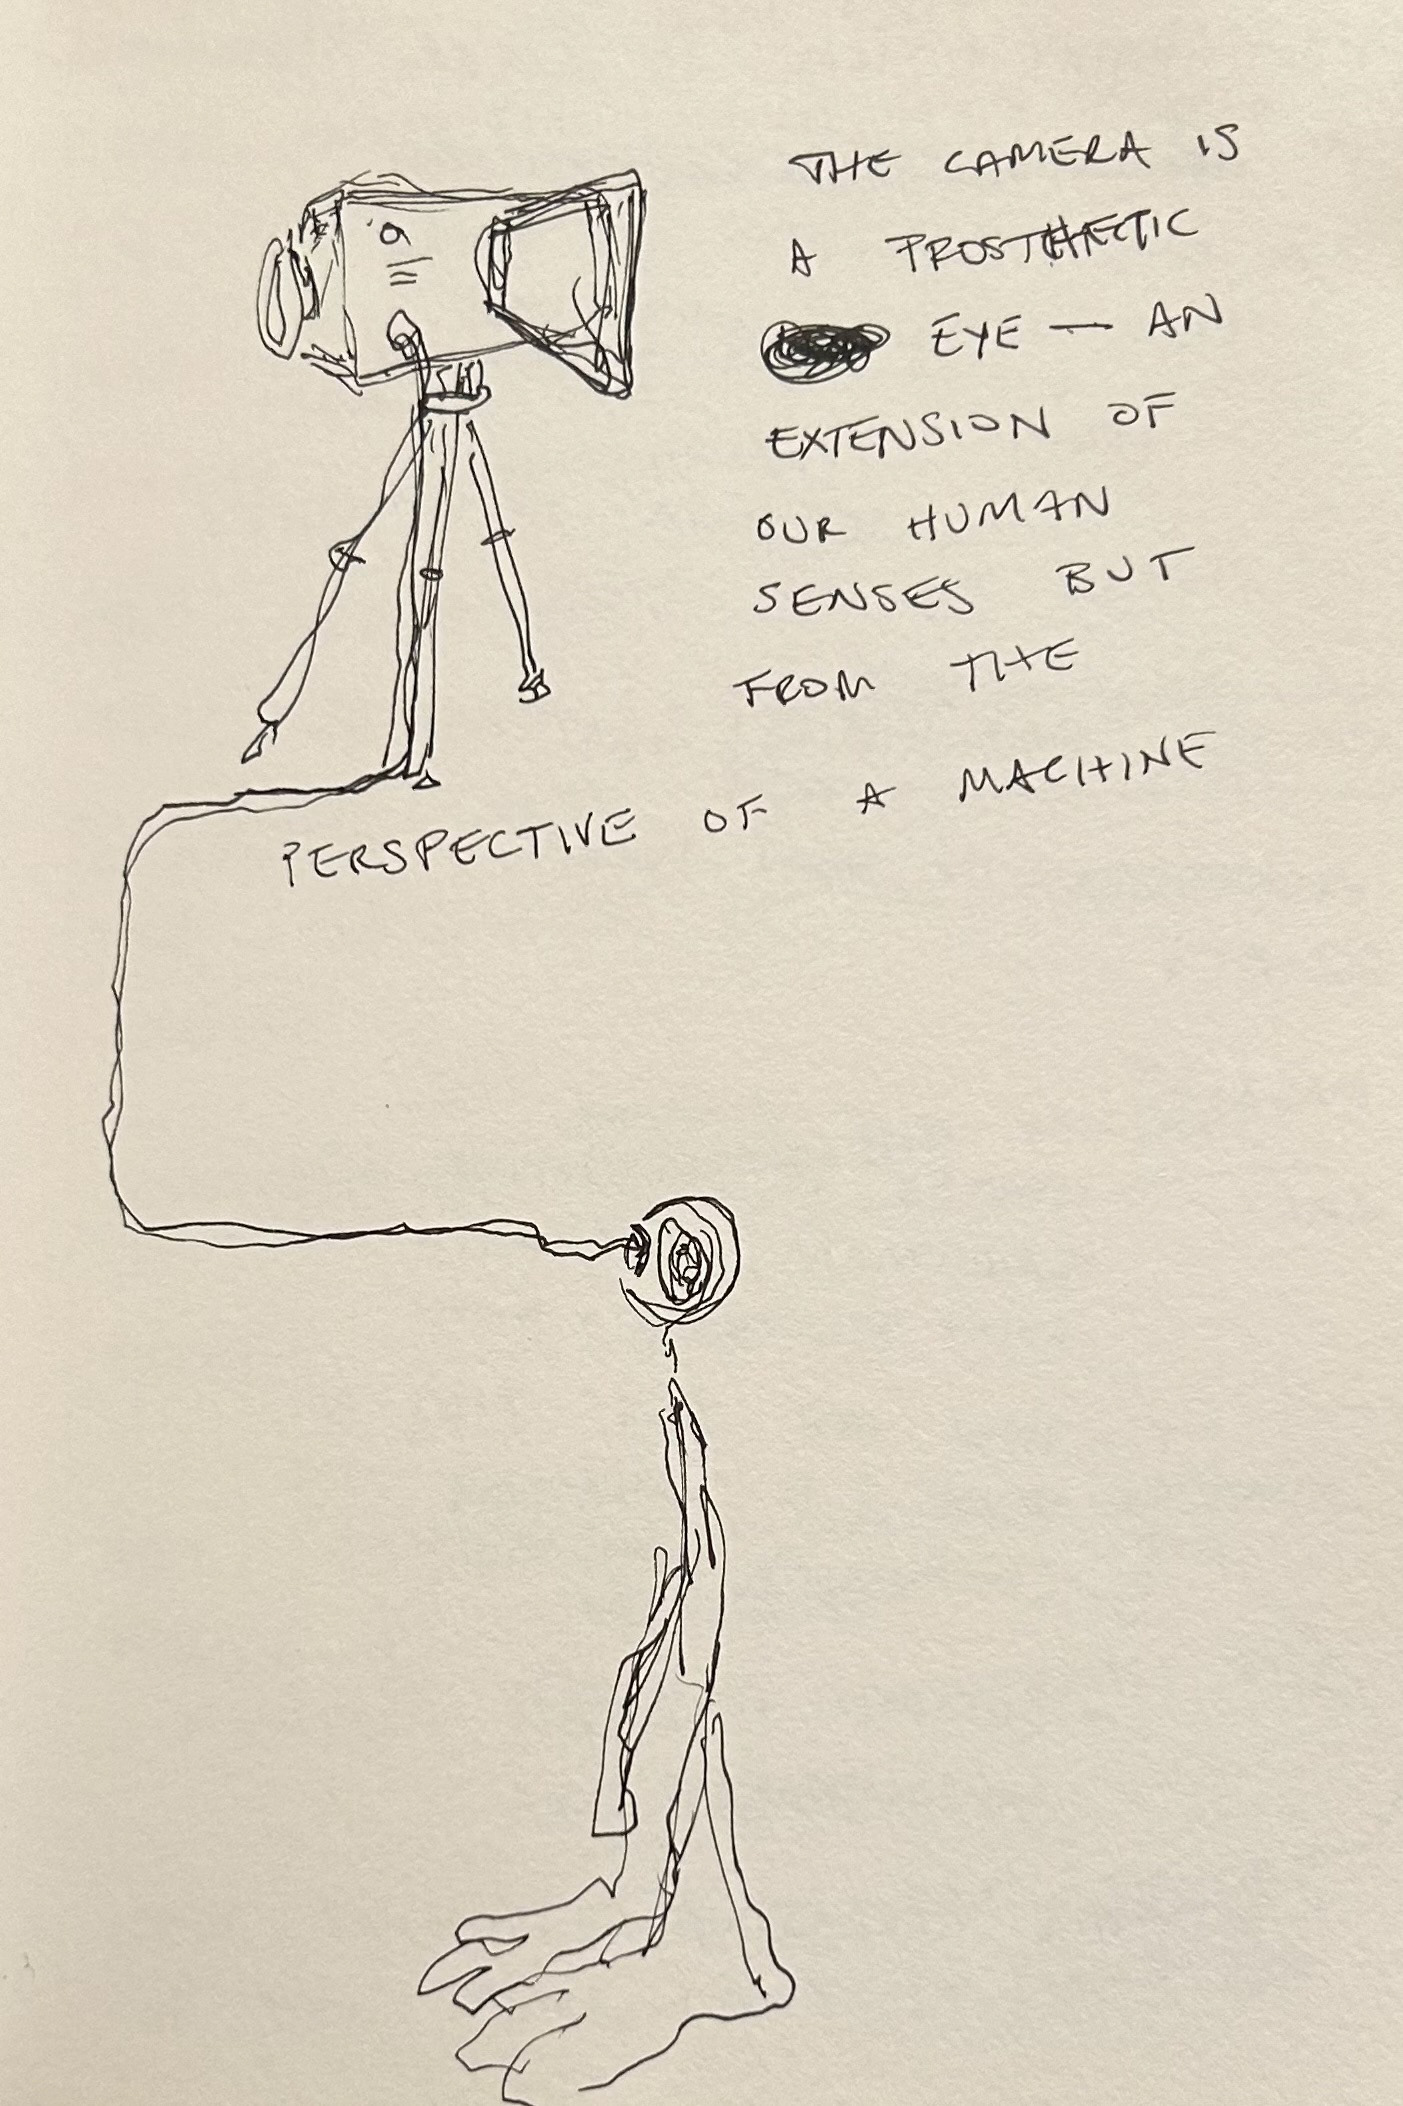 THE CAMERA IS
A PROSTHETIC
EYE — AN
EXTENSION OF
OUR HUMAN
SENSES BUT
FROM THE
PERSPECTIVE OF A MACHINE